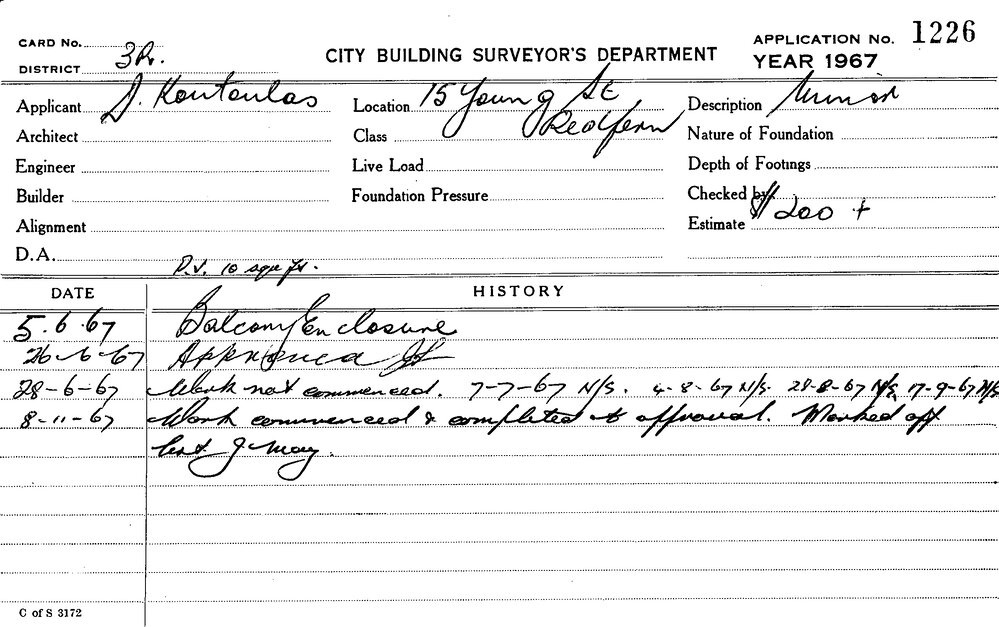 CARD No. APPLICATION No. 1226
DISTRICT 3R. CITY BUILDING SURVEYOR'S DEPARTMENT YEAR 1967
Applicant J. Koutoulas Location 15 Young St Description Minor
Architect Class Redfern Nature of Foundation
Engineer Live Load Depth of Footings
Builder Foundation Pressure Checked by
Alignment Estimate $200 +
D.A.
10 sqr ft.
DATE HISTORY
5.6.67 Balcony Enclosure
26-6-67 Approved
28-6-67 Work not commenced. 7-7-67 N/S. 4-8-67 N/S. 28-8-67 N/S. 17-9-67 N/S
8-11-67 Work commenced & completed to approval. Marked off
J May.
C of S 3172